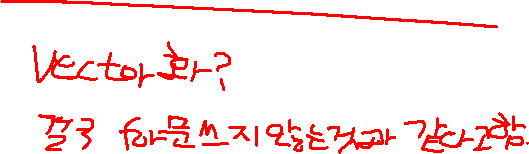 Vector화?
결국 for문 쓰지 않는것과 같다고함.